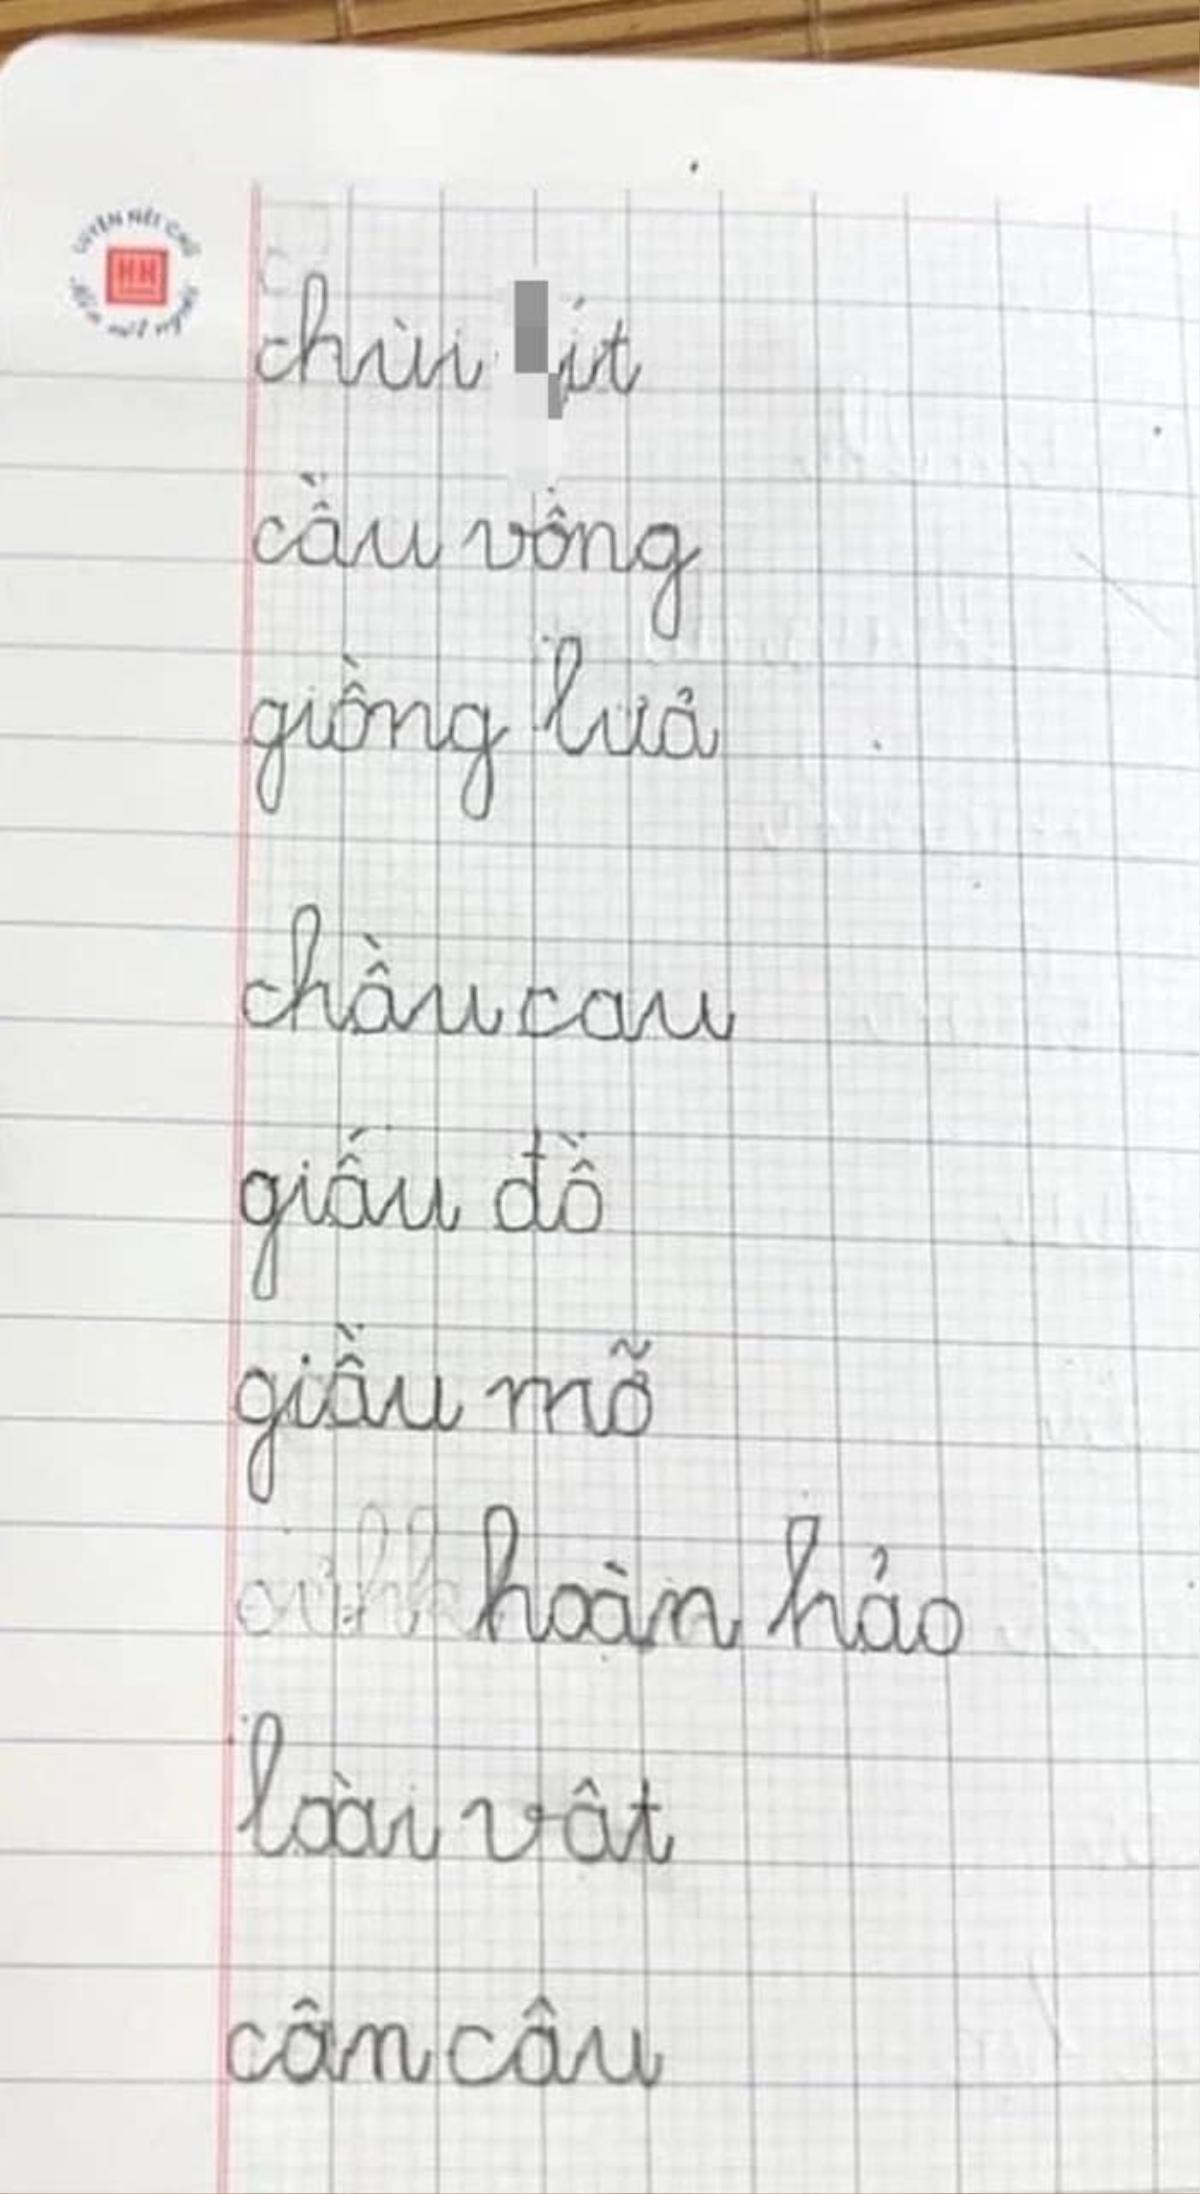 LUYỆN NÉT CHỮ
HH
chùi
cầu vồng
giồng luả
chầu cau
giấu đồ
giầu mỗ
hoàn hảo
loài vât
cân câu